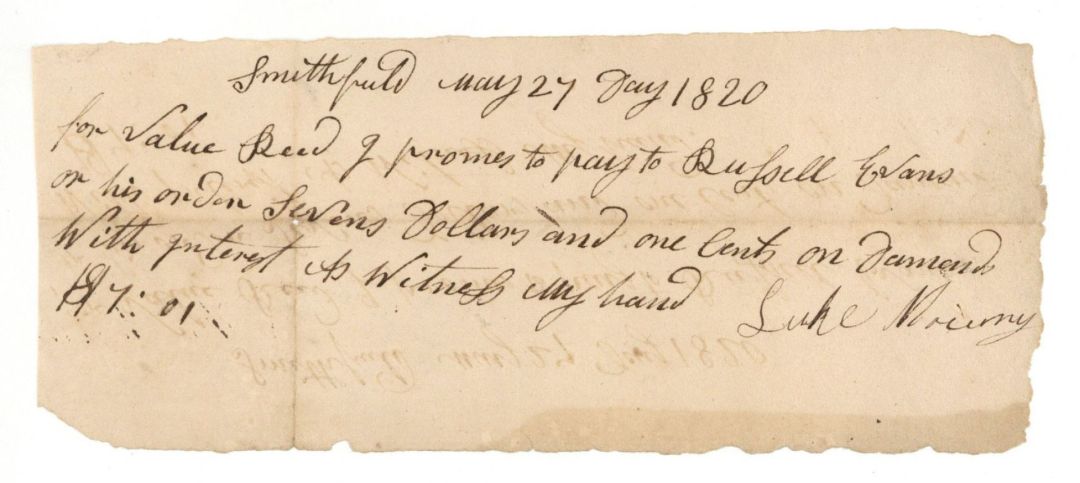 Smithfield May 27 Day 1820
for Value Recd I promes to pay to Russell Evans
or his order Sevens Dollars and one Cents on Damand
With Interest As Witness My hand
Luke
$7:01